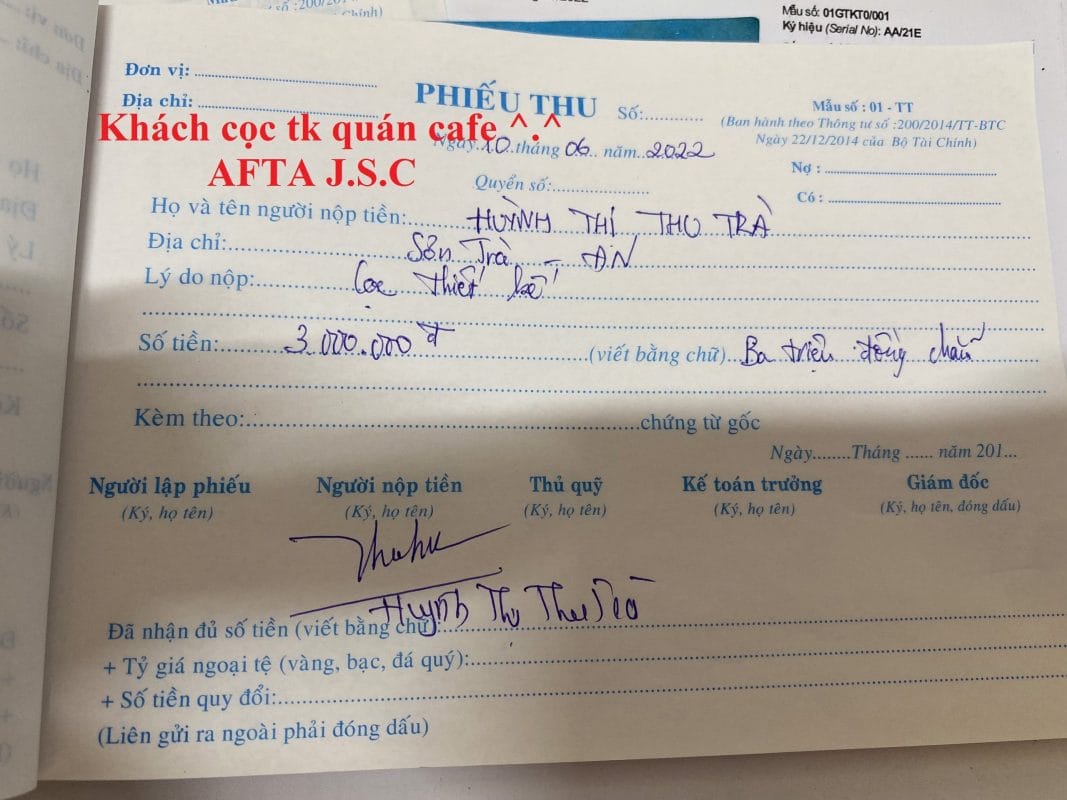 Mẫu số: 01GTKT0/001
Ký hiệu (Serial No): AA/21E
Đơn vị:
Địa chỉ:
PHIẾU THU
Số:
Mẫu số : 01 - TT
(Ban hành theo Thông tư số :200/2014/TT-BTC
Ngày 22/12/2014 của Bộ Tài Chính)
Khách cọc tk quán cafe ^.^
AFTA J.S.C
Ngày 10 tháng 06 năm 2022
Quyển số:
Nợ :
Có :
Họ và tên người nộp tiền: HUỲNH THỊ THU TRÀ
Địa chỉ: Sơn Trà - ĐN
Lý do nộp: Cọc thiết kế
Số tiền: 3.000.000 đ (viết bằng chữ) Ba triệu đồng chẵn
Kèm theo: chứng từ gốc
Ngày Tháng năm 201
Người lập phiếu Người nộp tiền Thủ quỹ Kế toán trưởng Giám đốc
(Ký, họ tên) (Ký, họ tên) (Ký, họ tên) (Ký, họ tên) (Ký, họ tên, đóng dấu)
Huỳnh Thị Thu Trà
Đã nhận đủ số tiền (viết bằng chữ):
+ Tỷ giá ngoại tệ (vàng, bạc, đá quý):
+ Số tiền quy đổi:
(Liên gửi ra ngoài phải đóng dấu)